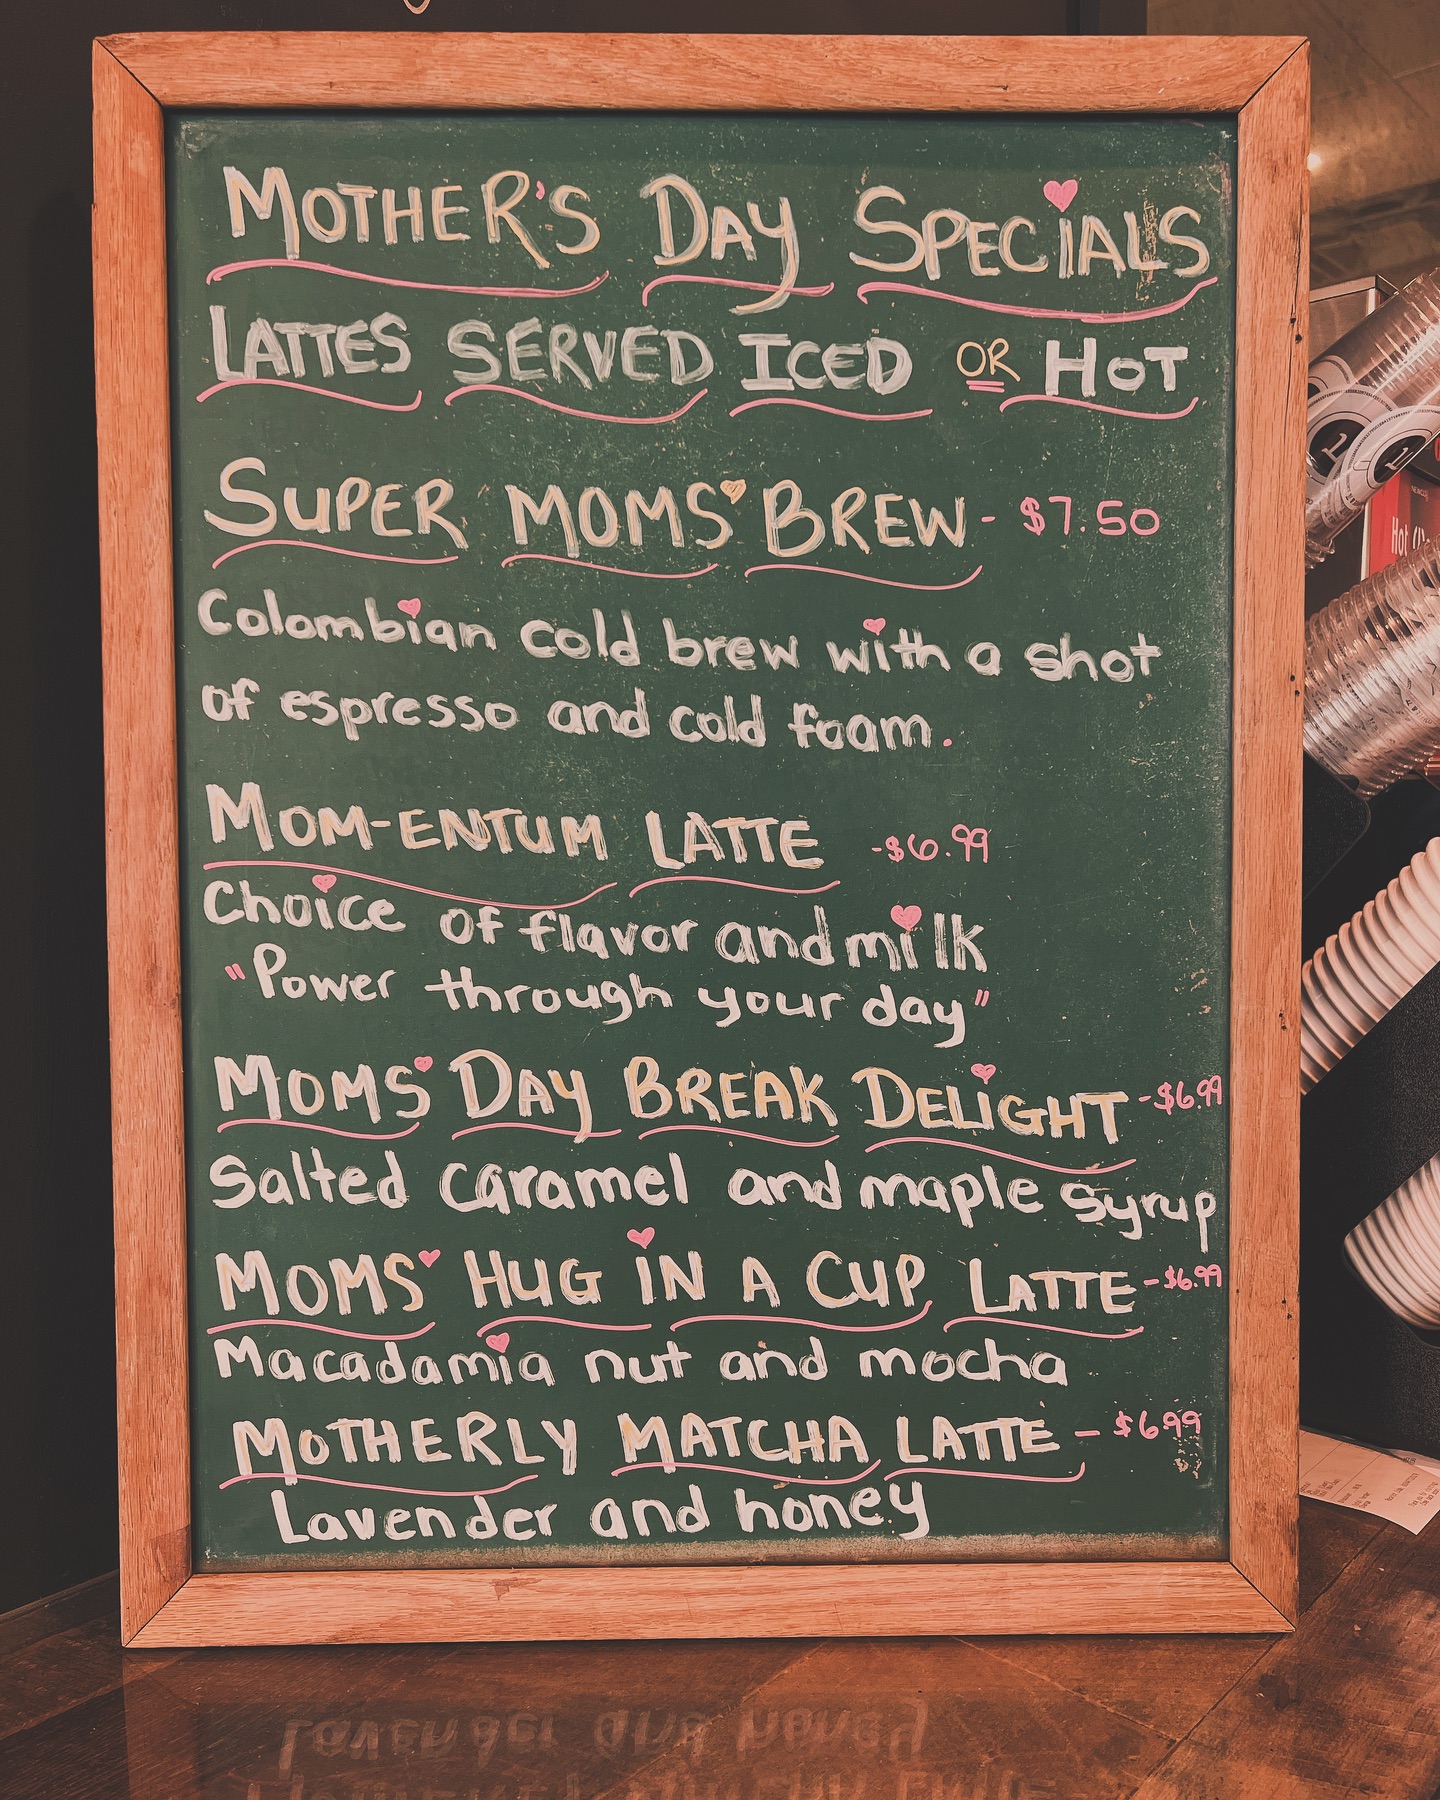 MOTHER'S DAY SPECIALS
LATTES SERVED ICED OR HOT
SUPER MOMS BREW - $7.50
Colombian cold brew with a shot
of espresso and cold foam.
MOM-ENTUM LATTE -$6.99
Choice of flavor and milk
"Power through your day"
MOMS DAY BREAK DELIGHT -$6.99
Salted caramel and maple syrup
MOMS HUG IN A CUP LATTE -$6.99
Macadamia nut and mocha
MOTHERLY MATCHA LATTE - $6.99
Lavender and honey
Hot